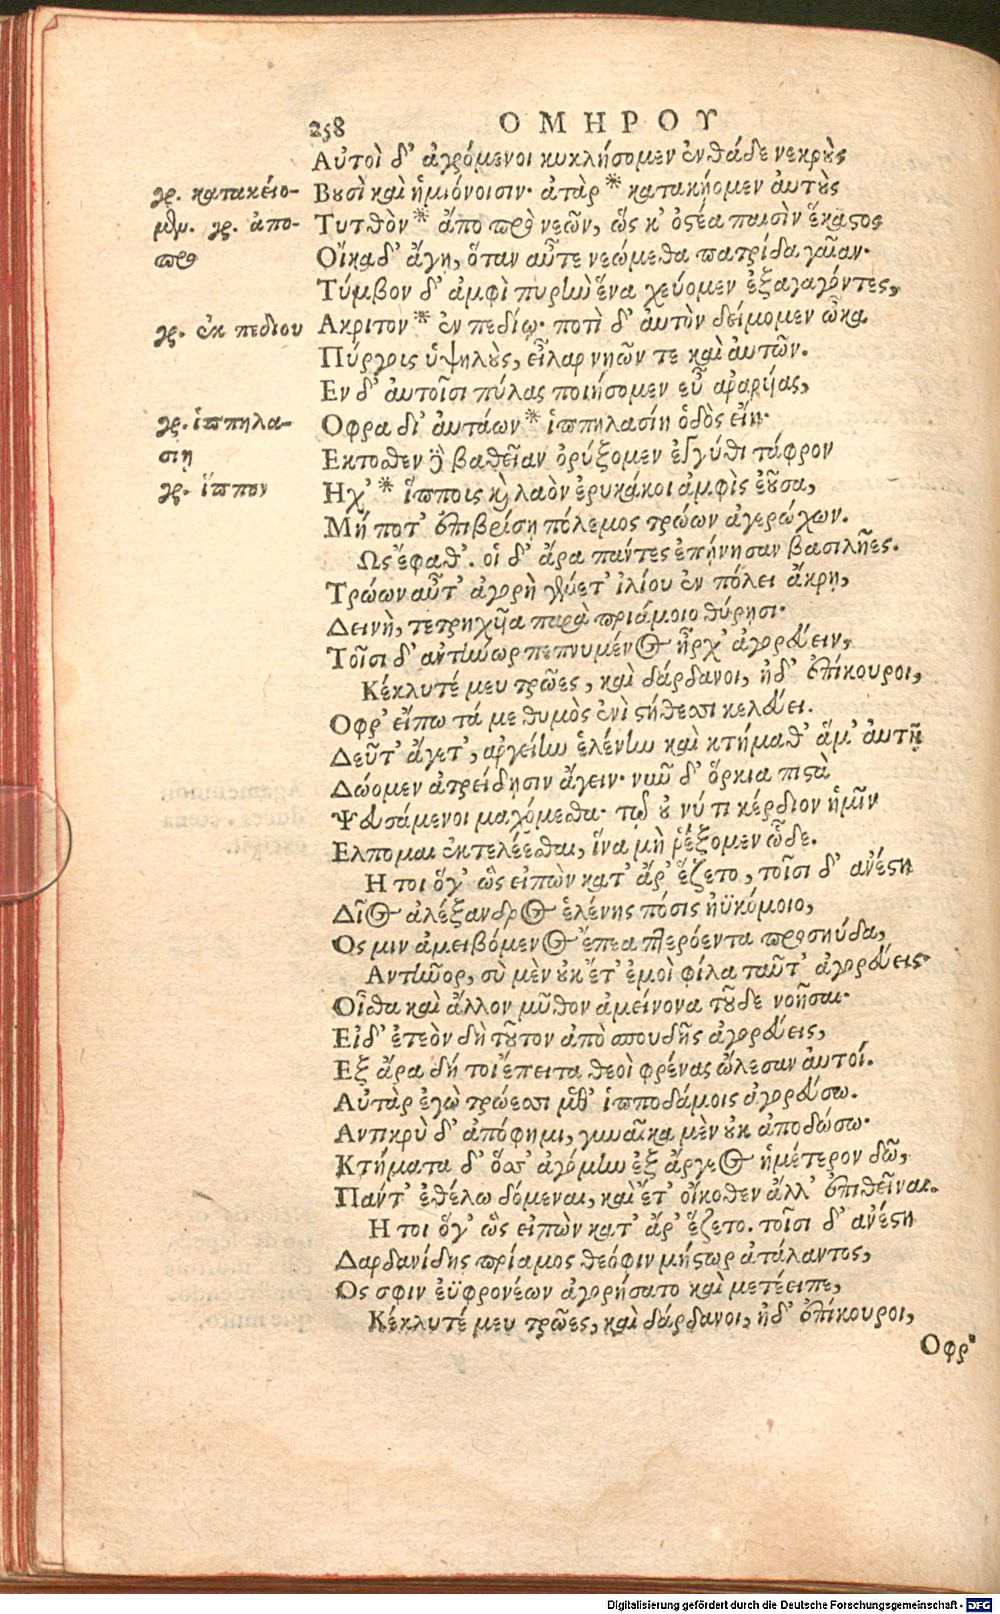 258 ΟΜΗΡΟΥ
Αὐτοὶ δ' ἀγρόμενοι κυκλήσομεν ἐνθάδε νεκροὺς
γρ. κατακείο- Βουσὶ καὶ ἡμιόνοισιν· ἀτὰρ * κατακήομεν αὐτοὺς
μεν. γρ. ἀπο- Τυτθὸν * ἄπο πρὸ νεῶν, ὥς κ' ὀστέα παισὶν ἕκαστος
προ Οἴκαδ' ἄγῃ, ὅταν αὖτε νεώμεθα πατρίδα γαῖαν·
Τύμβον δ' ἀμφὶ πυρὴν ἕνα χεύομεν ἐξαγαγόντες,
γρ. ἐκ πεδίου Ακριτον * ἐν πεδίῳ· ποτὶ δ' αὐτὸν δείμομεν ὦκα
Πύργοις ὑψηλοὺς, εἶλαρ νηῶν τε καὶ αὐτῶν.
Εν δ' αὐτοῖσι πύλας ποιήσομεν εὖ ἀραρυίας,
γρ. ἱππηλα- Οφρα δι' αὐτάων * ἱππηλασίη ὁδὸς εἴη·
σιῃ Εκτοσθεν δὲ βαθεῖαν ὀρύξομεν ἐγγύθι τάφρον
γρ. ἵππον Ηχ' * ἵπποις καὶ λαὸν ἐρυκάκοι ἀμφὶς ἐοῦσα,
Μή ποτ' ἐπιβρίσῃ πόλεμος τρώων ἀγερώχων.
Ως ἔφαθ'. οἱ δ' ἄρα πάντες ἐπῄνησαν βασιλῆες.
Τρώων αὖτ' ἀγορὴ γένετ' ἰλίου ἐν πόλει ἄκρῃ,
Δεινὴ, τετρηχυῖα παρὰ πριάμοιο θύρῃσι·
Τοῖσι δ' ἀντήνωρ πεπνυμένος ἦρχ' ἀγορεύειν,
Κέκλυτέ μευ τρῶες, καὶ δάρδανοι, ἠδ' ἐπίκουροι,
Οφρ' εἴπω τά με θυμὸς ἐνὶ στήθεσσι κελεύει.
Δεῦτ' ἄγετ', ἀργείην ἑλένην καὶ κτήμαθ' ἅμ' αὐτῇ
Δώομεν ἀτρείδῃσιν ἄγειν· νῦν δ' ὅρκια πιστὰ
Ψευσάμενοι μαχόμεσθα· τῷ οὔ νύ τι κέρδιον ἡμῖν
Ελπομαι ἐκτελέεσθαι, ἵνα μὴ ῥέξομεν ὧδε.
Η τοι ὅγ' ὣς εἰπὼν κατ' ἄρ' ἕζετο, τοῖσι δ' ἀνέστη
Δῖος ἀλέξανδρος ἑλένης πόσις ἠϋκόμοιο,
Ος μιν ἀμειβόμενος ἔπεα πτερόεντα προσηύδα,
Αντῆνορ, σὺ μὲν οὐκ ἔτ' ἐμοὶ φίλα ταῦτ' ἀγορεύεις·
Οἶσθα καὶ ἄλλον μῦθον ἀμείνονα τοῦδε νοῆσαι·
Εἰ δ' ἐτεὸν δὴ τοῦτον ἀπὸ σπουδῆς ἀγορεύεις,
Εξ ἄρα δή τοι ἔπειτα θεοὶ φρένας ὤλεσαν αὐτοί.
Αὐτὰρ ἐγὼ τρώεσσι μεθ' ἱπποδάμοις ἀγορεύσω.
Αντικρὺ δ' ἀπόφημι, γυναῖκα μὲν οὐκ ἀποδώσω·
Κτήματα δ' ὅσσ' ἀγόμην ἐξ ἄργεος ἡμέτερον δῶ,
Πάντ' ἐθέλω δόμεναι, καὶ ἔτ' οἴκοθεν ἄλλ' ἐπιθεῖναι.
Η τοι ὅγ' ὣς εἰπὼν κατ' ἄρ' ἕζετο. τοῖσι δ' ἀνέστη
Δαρδανίδης πρίαμος θεόφιν μήστωρ ἀτάλαντος,
Ος σφιν ἐϋφρονέων ἀγορήσατο καὶ μετέειπε,
Κέκλυτέ μευ τρῶες, καὶ δάρδανοι, ἠδ' ἐπίκουροι,
Οφρ'
Digitalisierung gefördert durch die Deutsche Forschungsgemeinschaft - DFG